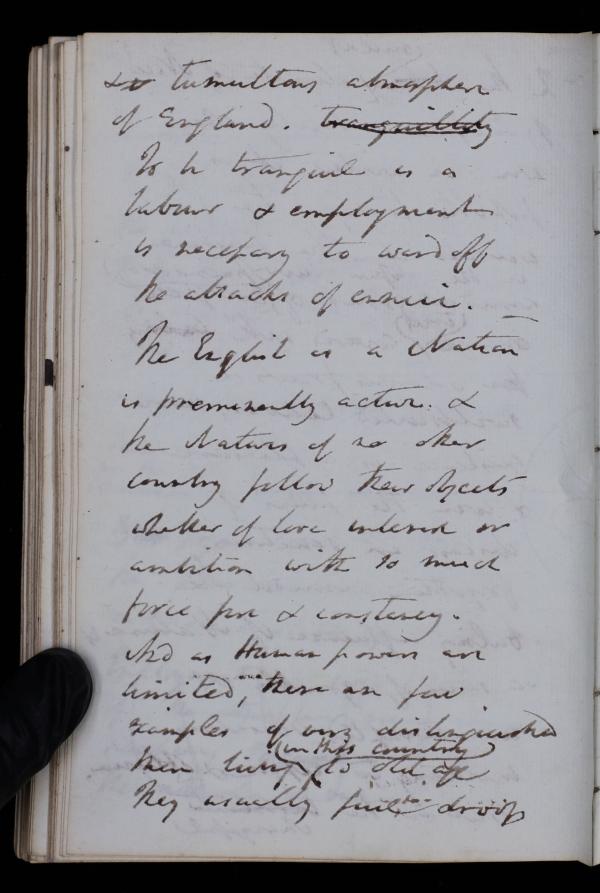 & tumultous atmosphere
of England. tranquillity
To be tranquil is a
labour & employment
is necessary to ward off
the attacks of ennui.
The English as a Nation
is preminently active. &
the Natives of no other
country follow their objects
whether of love interest or
ambition with so much
force fire & constancy.
And as Human powers are
limited, there are few
examples of very distinguished
(in this country)
Men living to old age
They usually fail droop